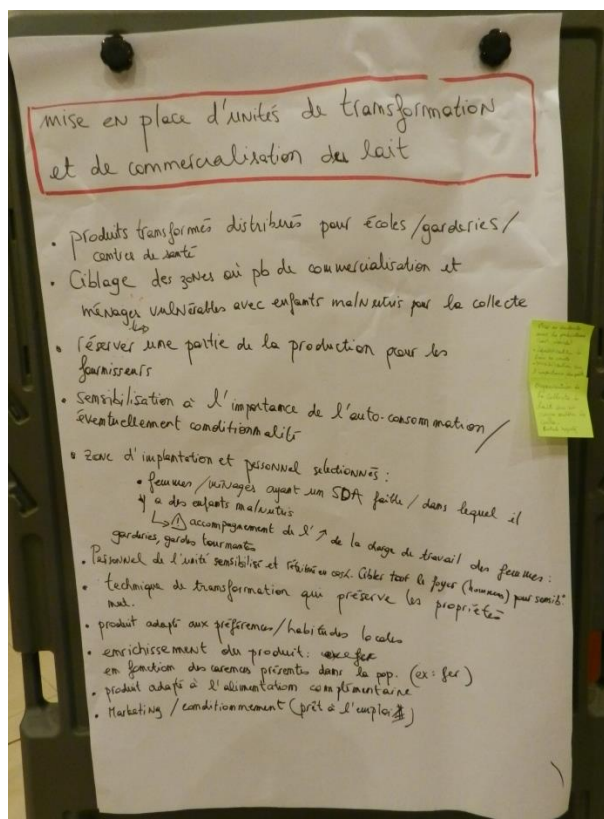 mise en place d'unités de transformation
et de commercialisation du lait
• produits transformés distribués pour écoles/garderies/
centres de santé
• Ciblage des zones où pb de commercialisation et
ménages vulnérables avec enfants malnutris pour la collecte
• réserver une partie de la production pour les
fournisseurs
• sensibilisation à l'importance de l'auto-consommation/
éventuellement conditionnalité
• zone d'implantation et personnel selectionnés :
• femmes/ménages ayant un SDA faible/dans lequel il
y a des enfants malnutris
↳ ⚠ accompagnement de l'↗ de la charge de travail des femmes :
garderies, gardes tournantes
• Personnel de l'unité sensibilisé et rétribué en cash. Cibler tout le foyer (hommes) pour sensib°
• technique de transformation qui préserve les propriétés
nut.
• produit adapté aux préférences/habitudes locales
• enrichissement du produit :
en fonction des carences présentes dans la pop. (ex : fer)
• produit adapté à l'alimentation complémentaire
• Marketing/conditionnement (prêt à l'emploi)